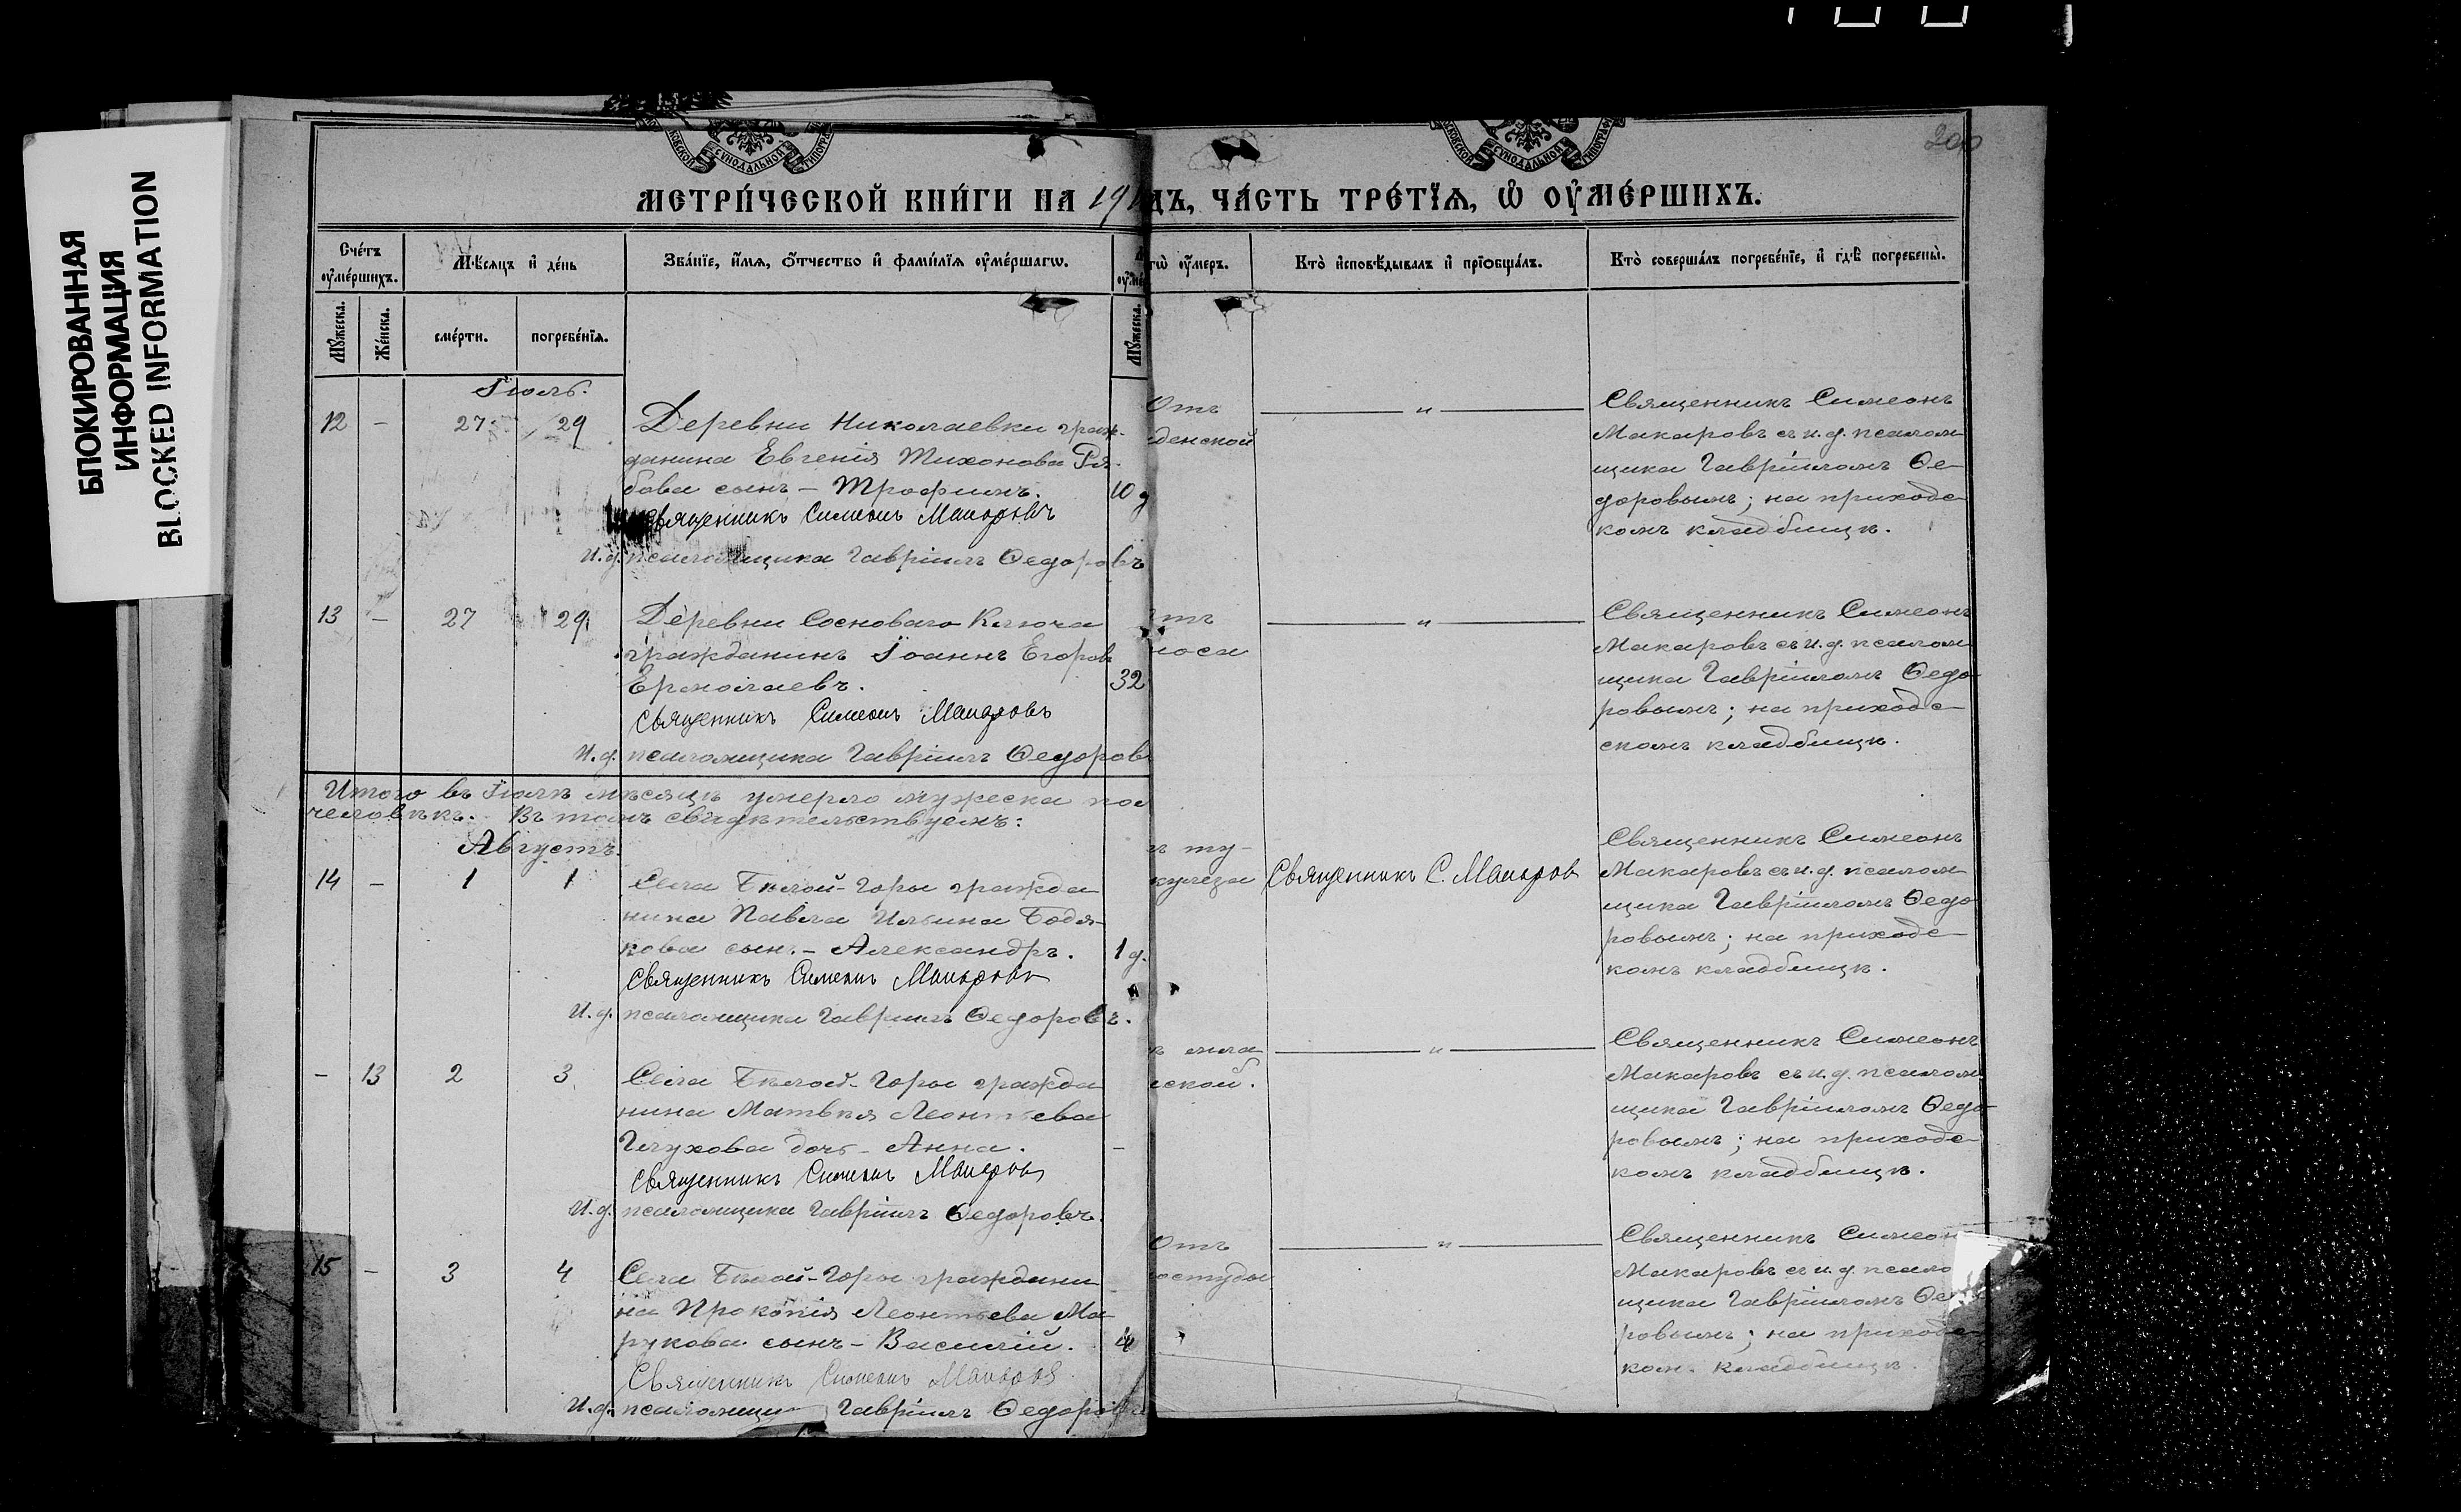 БЛОКИРОВАННАЯ
ИНФОРМАЦИЯ
BLOCKED INFORMATION
МОСКОВСКОЙ СѴНОДАЛЬНОЙ ТИПОГРАФІИ
МОСКОВСКОЙ СѴНОДАЛЬНОЙ ТИПОГРАФІИ
200
МЕТРИ́ЧЕСКОЙ КНИ́ГИ НА 191
ДЪ, ЧА́СТЬ ТРЕ́ТЇѦ, Ѡ҆ ОУ҆МЕ́РШИХЪ.
Сче́тъ оу҆ме́ршихъ.
Мѣ́сяцъ и҆ де́нь
Зва́нїе, и҆́мѧ, ѻ҆́тчество и҆ фами́лїѧ оу҆ме́ршагѡ.
гѡ̀ оу҆́меръ.
Кто̀ и҆сповѣ́дывалъ и҆ прїѻбща́лъ.
Кто̀ соверша́лъ погребе́нїе, и҆ гдѣ̀ погребены̀.
Мꙋ́жеска.
Же́нска.
сме́рти.
погребе́нїѧ.
Мꙋ́жеска.
Іюль.
12 - 27 29 Деревни Николаевки граж-
данина Евгенія Тихонова Ря-
бова сынъ - Трофимъ. 10 д
Священникъ Симеонъ Макаровъ
И.д. псаломщика Гавріилъ Ѳедоровъ
Отъ
денской
— " —
Священникъ Симеонъ
Макаровъ съ и.д. псалом
щика Гавріиломъ Ѳе-
доровымъ; на приходс-
комъ кладбищѣ.
13 - 27 29 Деревни Сосноваго Ключа
гражданинъ Іоаннъ Егоров
Ермолаевъ. 32
Священникъ Симеонъ Макаровъ
И.д. псаломщика Гавріилъ Ѳедоров
тъ
носа
— " —
Священникъ Симеонъ
Макаровъ съ и.д. псалом
щика Гавріиломъ Ѳедо-
ровымъ; на приходс-
скомъ кладбищѣ.
Итого въ Іюлѣ мѣсяцѣ умерло мужеска пол
человѣкъ. Въ томъ свидѣтельствуемъ:
Августъ.
14 - 1 1 Села Бѣлой-Горы гражда
нина Павла Ильина Бодя-
кова сынъ - Александръ. 1 д.
Священникъ Симеонъ Макаровъ
И.д. псаломщика Гавріилъ Ѳедоровъ.
ъ ту-
кулеза
Священникъ С. Макаров
Священникъ Симеонъ
Макаровъ съ и.д. псалом
щика Гавріиломъ Ѳедо
ровымъ; на приходс-
комъ кладбищѣ.
- 13 2 3 Села Бѣлой-Горы гражда
нина Матвѣя Леонтьева
Глухова дочь - Анна. -
Священникъ Симеонъ Макаров
И.д. псаломщика Гавріилъ Ѳедоровъ.
ъ мла
ской.
— " —
Священникъ Симеонъ
Макаровъ съ и.д. псалом
щика Гавріиломъ Ѳедо-
ровымъ; на приходс-
комъ кладбищѣ.
15 - 3 4 Села Бѣлой-Горы граждани
на Прокопія Леонтьева Ма-
рукова сынъ - Василій.
Священникъ Симеонъ Макаров
И.д. псаломщи Гавріилъ Ѳедоровъ
Отъ
остуды
— " —
Священникъ Симеон
Макаровъ съ и.д. псало
щика Гавріиломъ Ѳедо
ровымъ; на приходс-
ком. кладбищѣ.